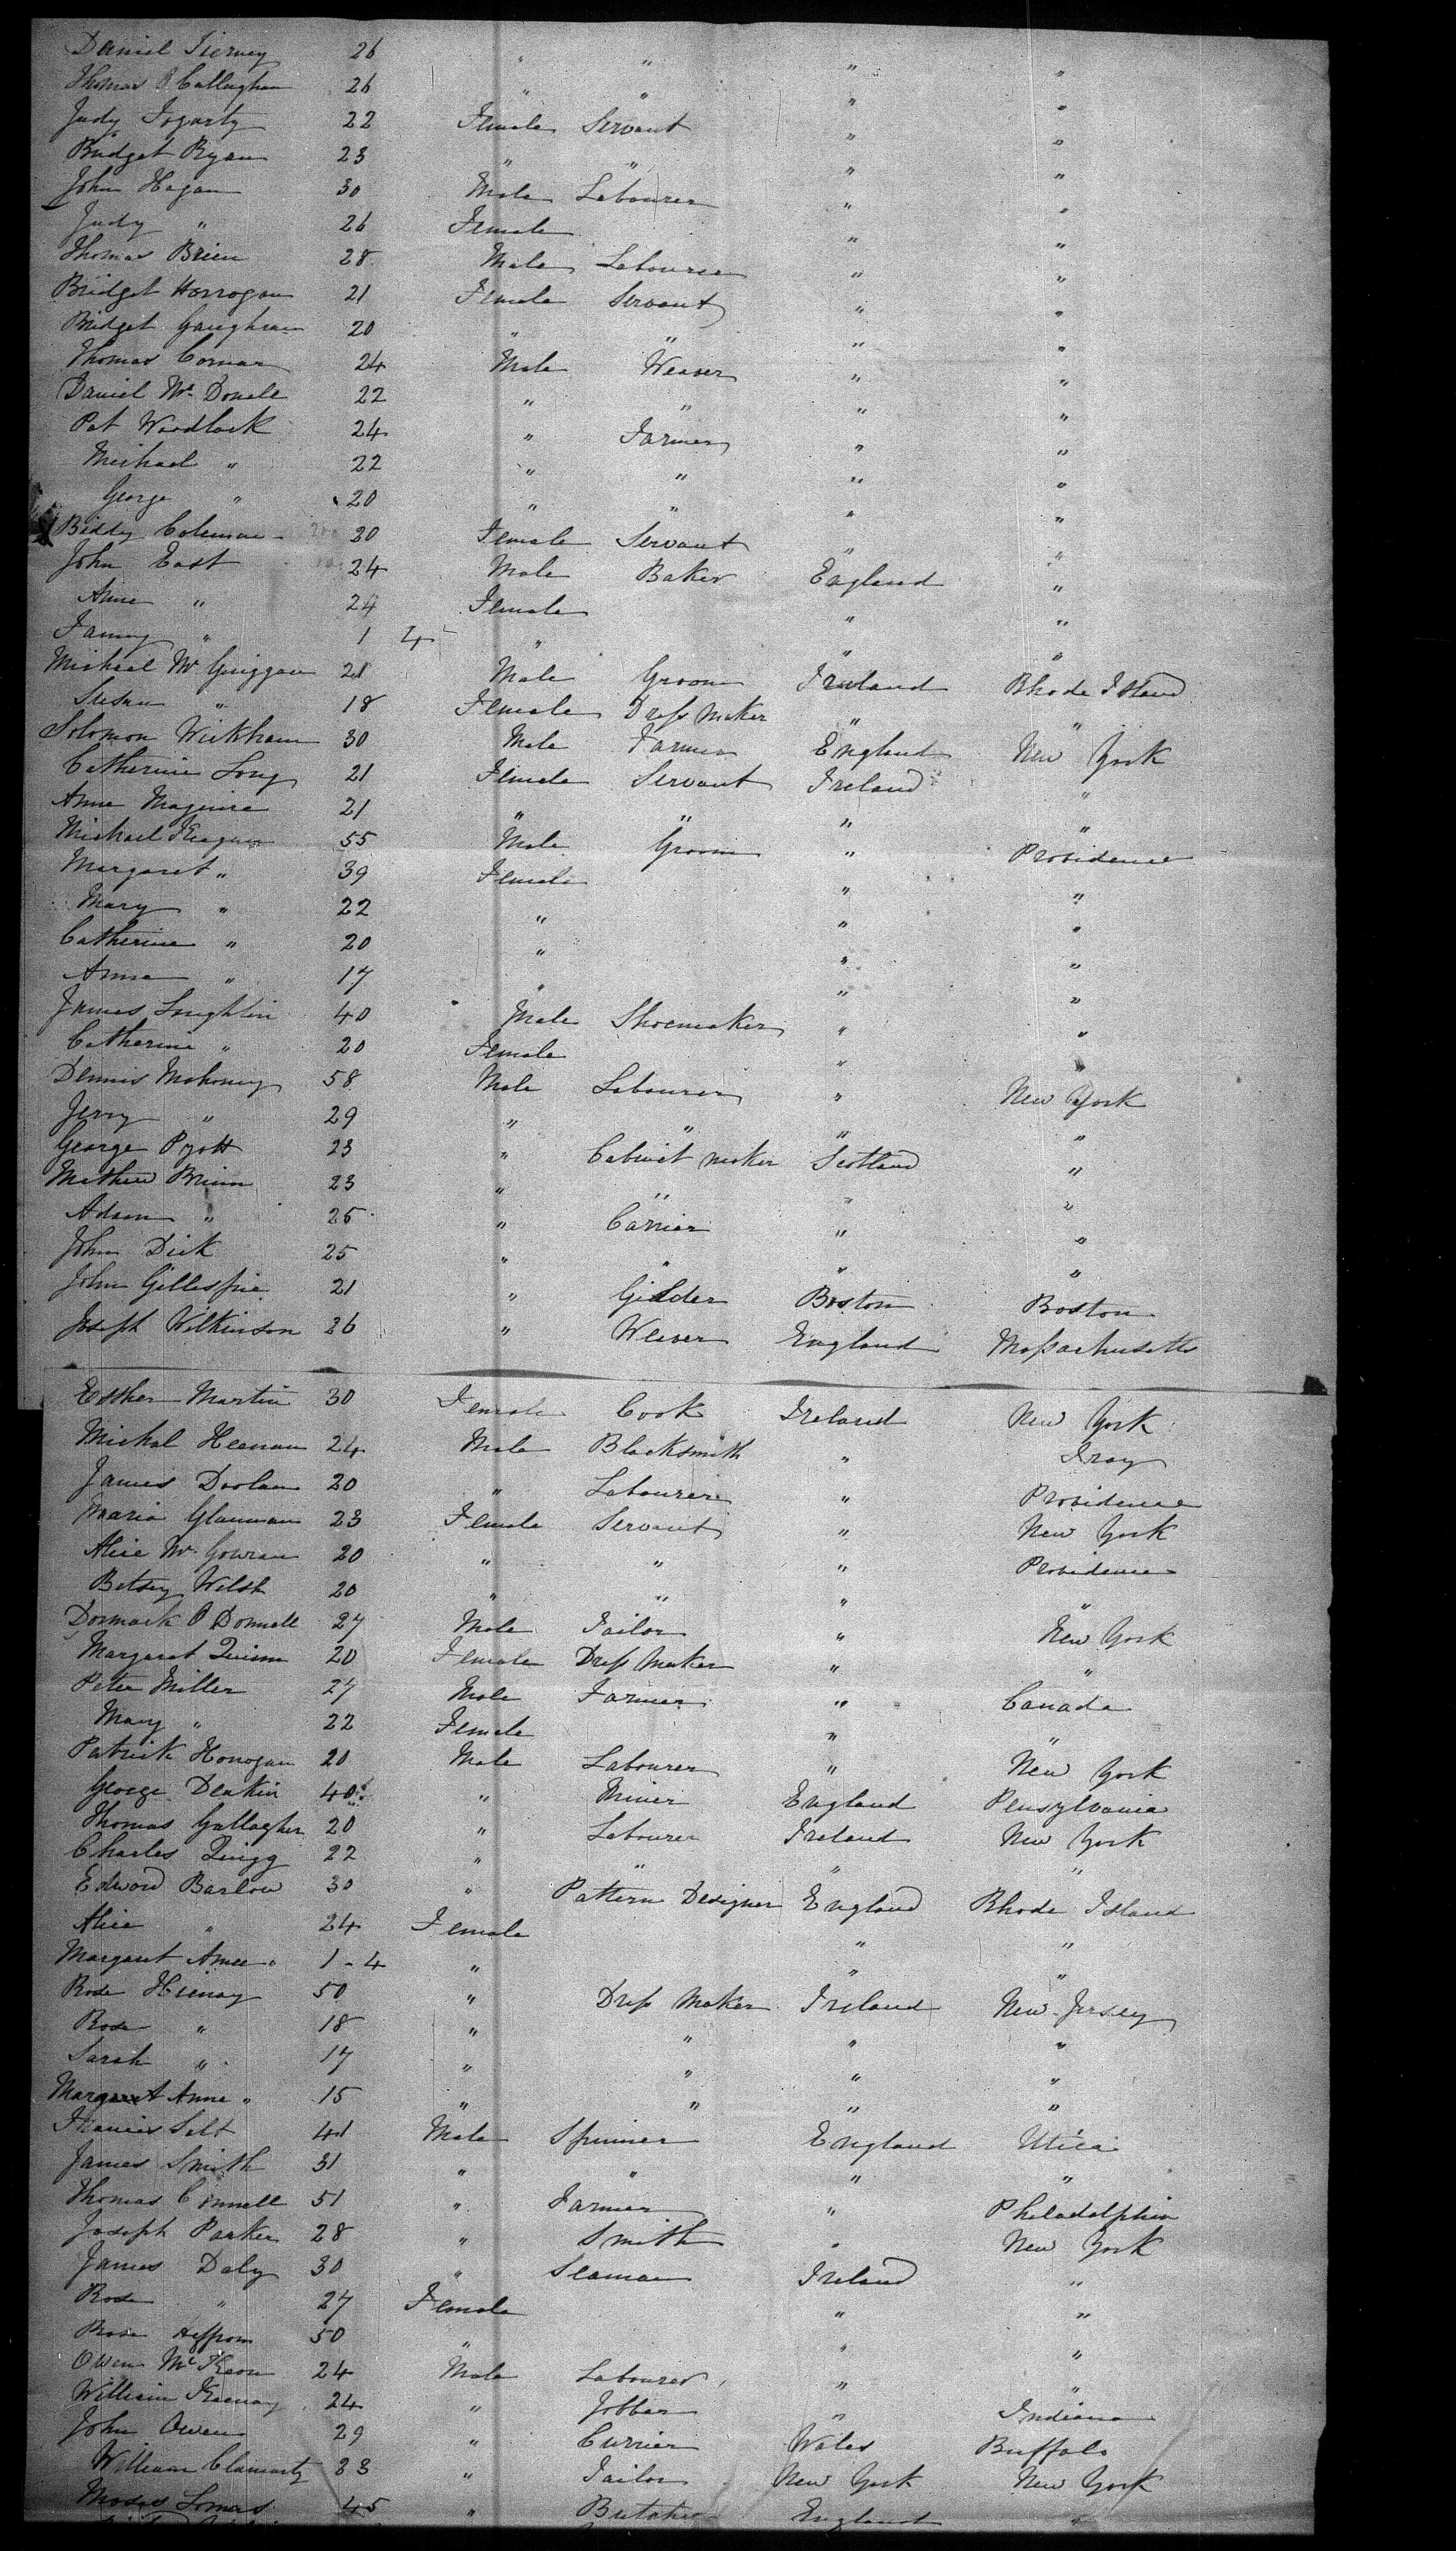 Daniel Tierney 26 " " " "
Thomas O'Callaghan 26 " " " "
Judy Fogarty 22 Female Servant " "
Bridget Ryan 23 " " " "
John Hagan 30 Male Labourer " "
Judy " 26 Female " "
Thomas Brien 28 Male Labourer " "
Bridget Horrogan 21 Female Servant " "
Bridget Gaughran 20 " " " "
Thomas Comar 24 Male Weaver " "
Daniel Mc Donell 22 " " " "
Pat Woodlock 24 " Farmer " "
Michael " 22 " " " "
George " 20 " " " "
Biddy Coleman 20 Female Servant " "
John East 24 Male Baker England "
Anne " 24 Female " "
Fanny " 1 4 " " "
Michael Mc Guiggan 21 Male Groom Ireland Rhode Island
Susan " 18 Female Dress Maker " "
Solomon Wickham 30 Male Farmer England New York
Catherine Long 21 Female Servant Ireland "
Anne Maguire 21 " " " "
Michael Keegan 55 Male Groom " Providence
Margaret " 39 Female " "
Mary " 22 " " "
Catherine " 20 " " "
Anna " 17 " " "
James Loughlin 40 Male Shoemaker " "
Catherine " 20 Female " "
Dennis Mahoney 58 Male Labourer " New York
Jerry " 29 " " " "
George Pyott 23 " Cabinet maker Scotland "
Mathew Brinn 23 " " " "
Adam " 25 " Carrier " "
John Dick 25 " " " "
John Gillespie 21 " Gilder Boston Boston
Joseph Wilkinson 26 " Weaver England Massachusetts
Esther Martin 30 Female Cook Ireland New York
Michal Heenan 24 Male Blacksmith " Troy
James Doolan 20 " Labourer " Providence
Maria Glannan 23 Female Servant " New York
Alice Mc Gowran 20 " " " Providence
Betsey Welsh 20 " " " "
Dormack O Donnell 27 Male Tailor " New York
Margaret Quinn 20 Female Dress Maker " "
Peter Miller 27 Male Farmer " Canada
Mary " 22 Female " "
Patrick Honogan 20 Male Labourer " New York
George Deakin 40 " Miner England Pensylvania
Thomas Gallagher 20 " Labourer Ireland New York
Charles Quigg 22 " " " "
Edward Barlow 30 " Pattern Designer England Rhode Island
Alice " 24 Female " "
Margaret Anne " 1 - 4 " " "
Rose 50 " Dress Maker Ireland New Jersey
Rose " 18 " " " "
Sarah " 17 " " " "
Margaret Anne " 15 " " " "
Francis Salt 41 Male Spinner England Utica
James Smith 31 " " " "
Thomas Connell 51 " Farmer " Philadelphia
Joseph Parker 28 " Smith " New York
James Daly 30 " Seaman Ireland "
Rose " 27 Female " "
Rose Heffron 50 " " "
Owen Mc Keon 24 Male Labourer " "
William Keenay 24 " Jobber " Indiana
John Owen 29 " Currier Wales Buffalo
William 33 " Tailor New York New York
Moses Lomas 45 " Butcher England "